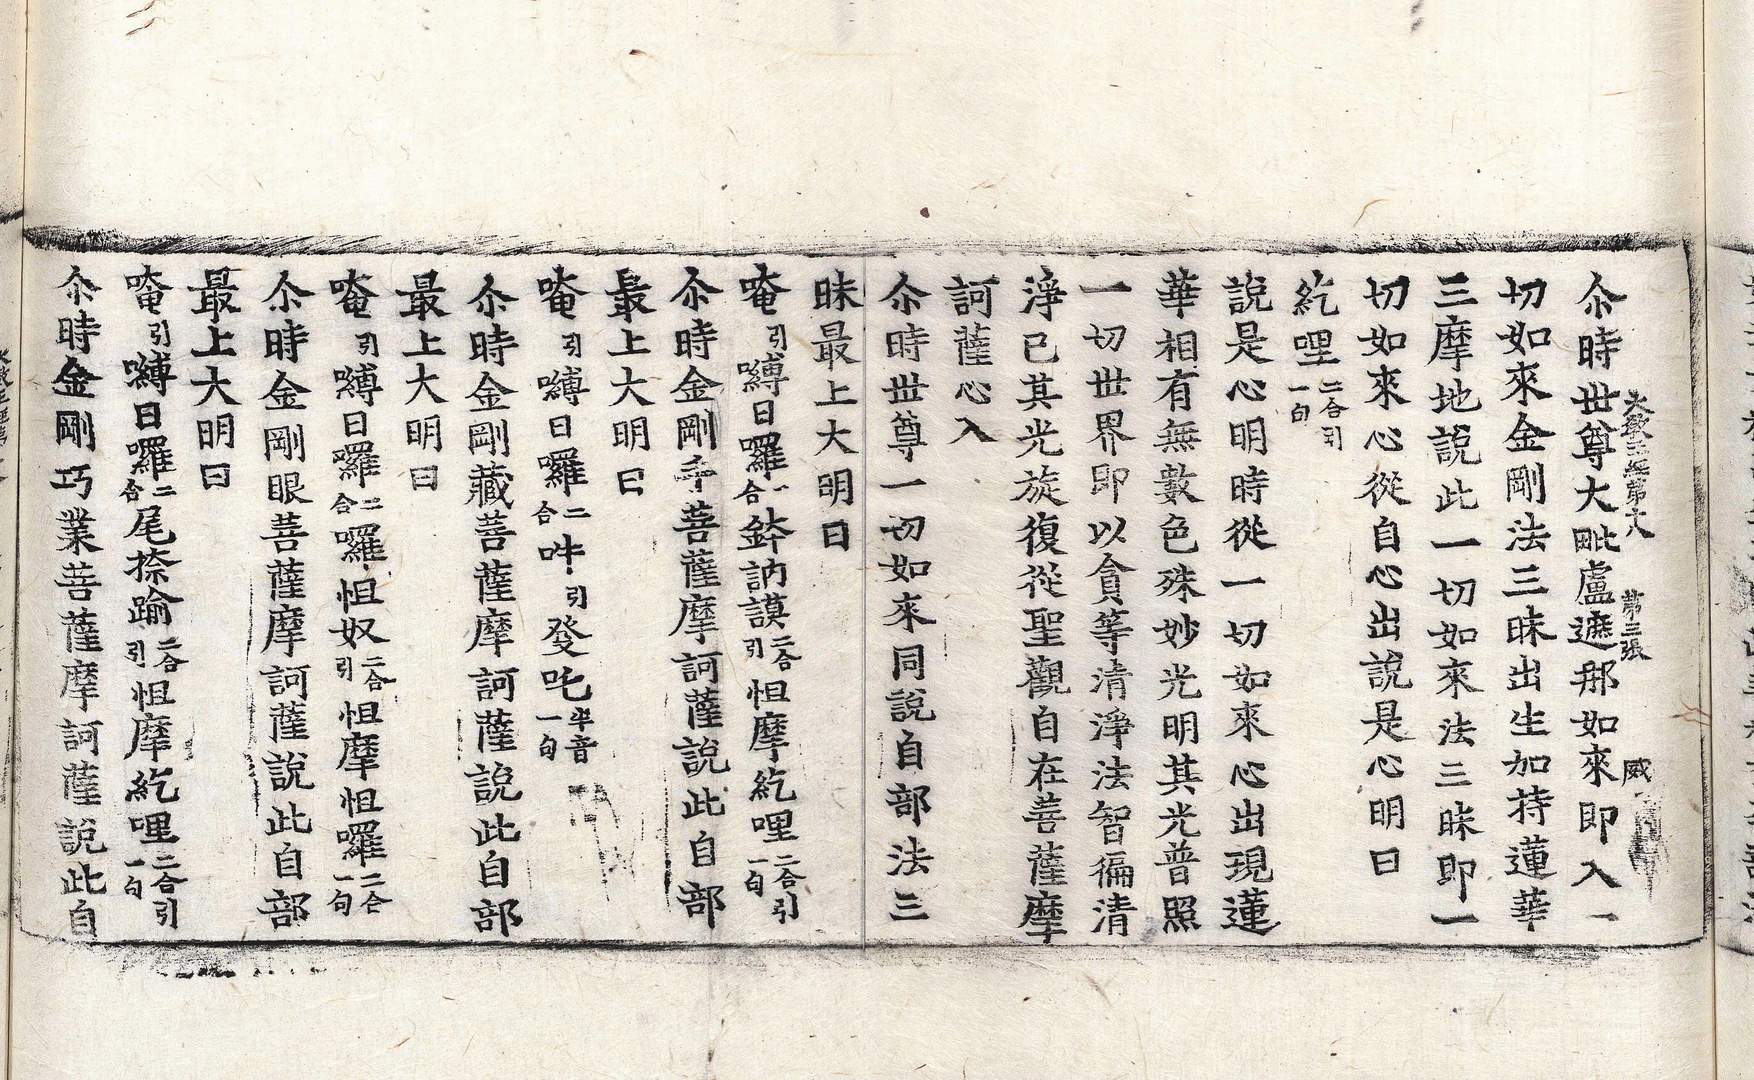 大敎王經第十八　第三張　威
尒時世尊大毗盧遮那如來即入一
切如來金剛法三昧出生加持蓮華
三摩地說此一切如來法三昧即一
切如來心從自心出說是心明曰
紇哩二合引一句
說是心明時從一切如來心出現蓮
華相有無數色殊妙光明其光普照
一切世界即以貪等清淨法智徧清
淨已其光旋復從聖觀自在菩薩摩
訶薩心入
尒時世尊一切如來同說自部法三
昧最上大明曰
唵引嚩日囉二合鉢訥謨二合引怛摩紇哩二合引一句
尒時金剛手菩薩摩訶薩說此自部
最上大明曰
唵引嚩日囉二合吽引癹吒半音一句
尒時金剛藏菩薩摩訶薩說此自部
最上大明曰
唵引嚩日囉二合囉怛奴二合引怛摩怛囉二合一句
尒時金剛眼菩薩摩訶薩說此自部
最上大明曰
唵引嚩日囉二合尾捺踰二合引怛摩紇哩二合引一句
尒時金剛巧業菩薩摩訶薩說此自